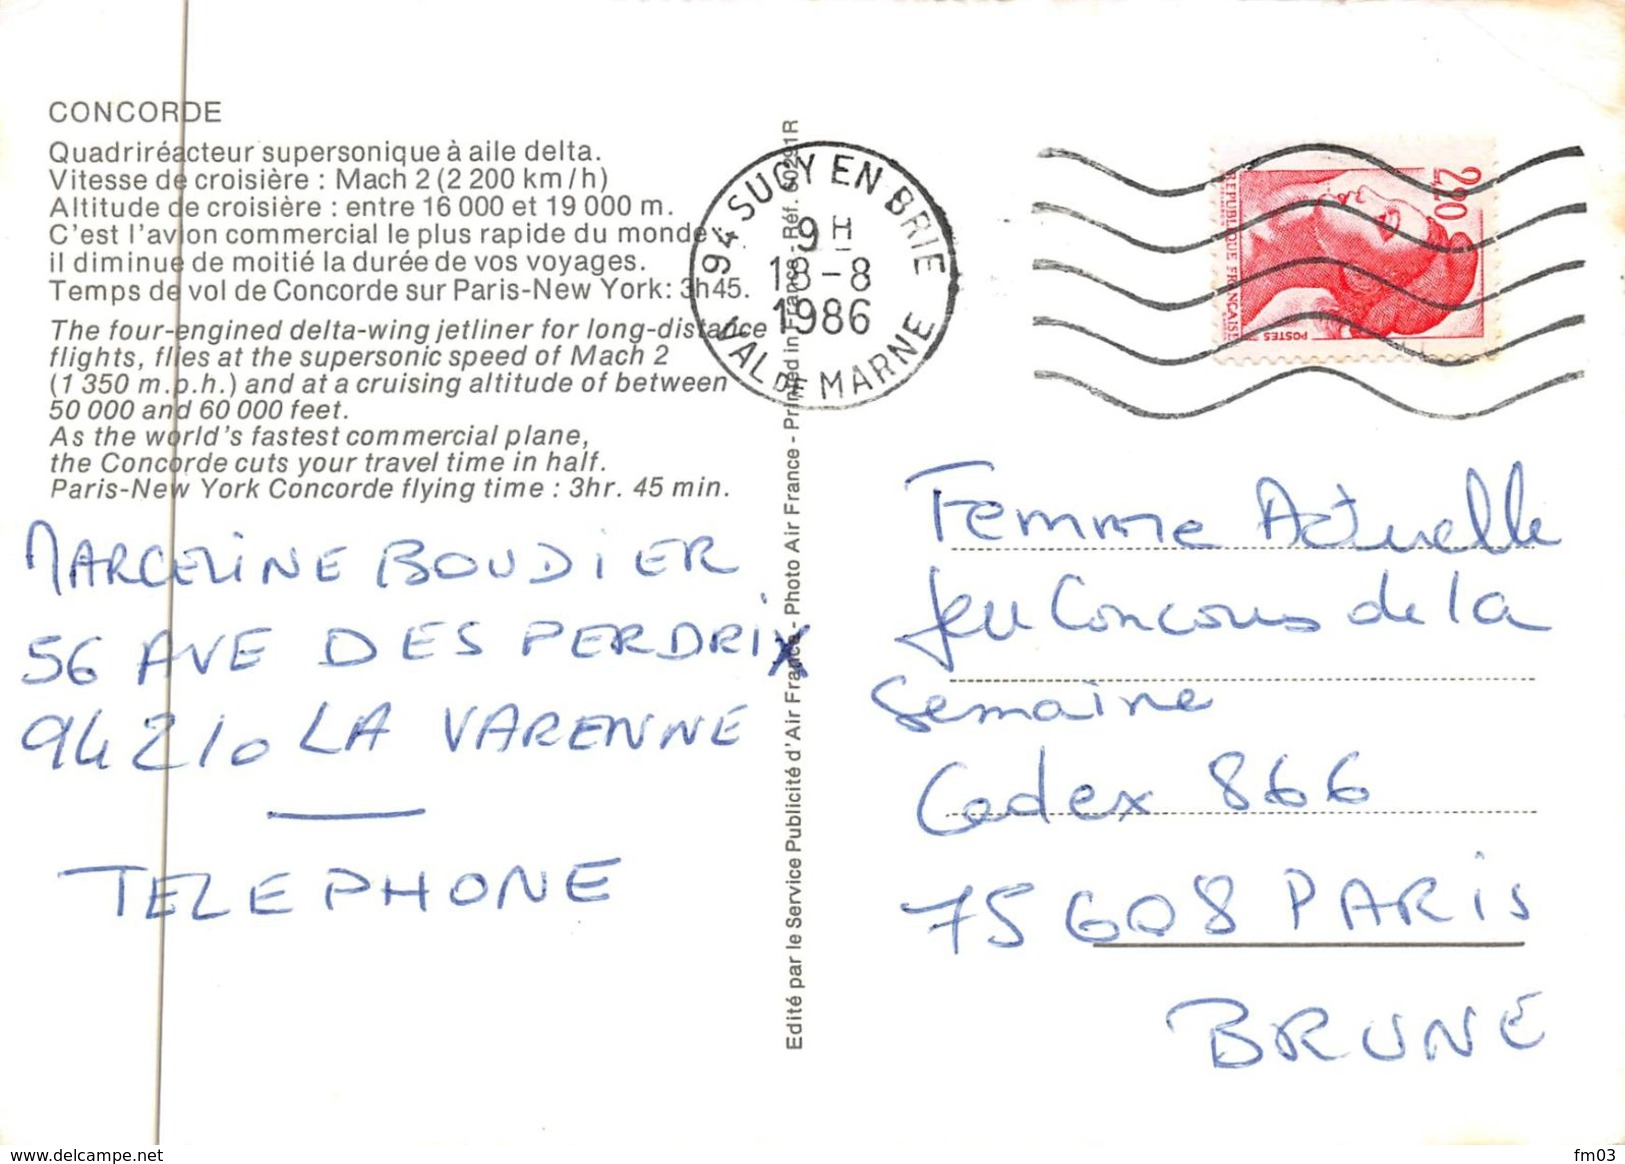 CONCORDE
Quadriréacteur supersonique à aile delta.
Vitesse de croisière : Mach 2 (2 200 km/h)
Altitude de croisière : entre 16 000 et 19 000 m.
C'est l'avion commercial le plus rapide du monde
il diminue de moitié la durée de vos voyages.
Temps de vol de Concorde sur Paris-New York: 3h45.
The four-engined delta-wing jetliner for long-distance
flights, flies at the supersonic speed of Mach 2
(1 350 m.p.h.) and at a cruising altitude of between
50 000 and 60 000 feet.
As the world's fastest commercial plane,
the Concorde cuts your travel time in half.
Paris-New York Concorde flying time : 3hr. 45 min.
MARCELINE BOUDIER
56 AVE DES PERDRIX
94210 LA VARENNE
TELEPHONE
Edité par le Service Publicité d'Air France - Photo Air France - Printed in France - Réf. 60291R
94 SUCY EN BRIE
9 H
18-8
1986
VAL DE MARNE
2,20
REPUBLIQUE FRANÇAISE
POSTES
Femme Actuelle
Jeu Concours de la
Semaine
Cedex 866
75608 PARIS
BRUNE
www.delcampe.net
fm03